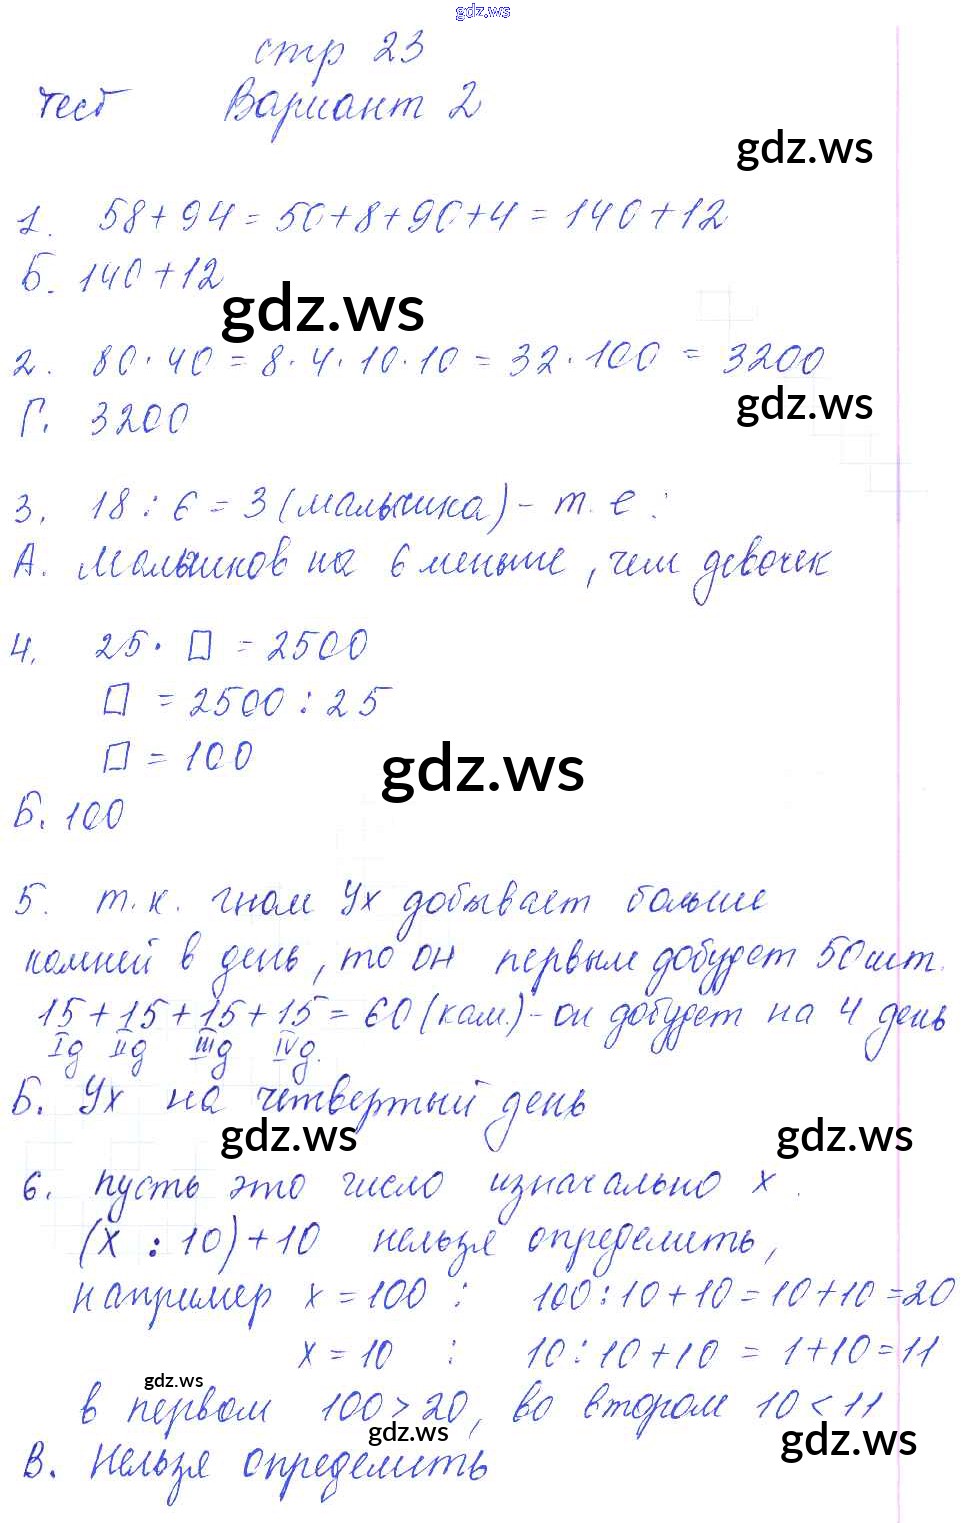 gdz.ws
стр 23
тест Вариант 2
gdz.ws
1. 58+94=50+8+90+4=140+12
Б. 140+12
gdz.ws
2. 80·40=8·4·10·10=32·100=3200
gdz.ws
Г. 3200
3. 18:6=3(мальчика)-т.е:
А. Мальчиков на 6 меньше, чем девочек
4. 25·□=2500
□=2500:25
□=100
gdz.ws
Б. 100
5. т.к. гном Ух добывает больше
камней в день, то он первым добудет 50шт.
15+15+15+15=60(кам.)-он добудет на 4 день
Iд IIд IIIд IVд.
Б. Ух на четвертый день
gdz.ws gdz.ws
6. пусть это число изначально х.
(х:10)+10 нельзя определить,
например х=100: 100:10+10=10+10=20
х=10: 10:10+10=1+10=11
gdz.ws
в первом 100>20, во втором 10<11
gdz.ws gdz.ws
В. Нельзя определить